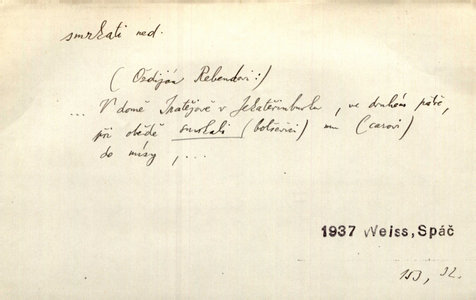 smrkati ned.
(Ozdiján Rebendovi:)
... V domě Ipatějově v Jekatěrinburku, ve druhém patře,
při obědě smrkali (bolševici) mu (carovi)
do mísy, ...
1937 Weiss, Spáč
153, 32.